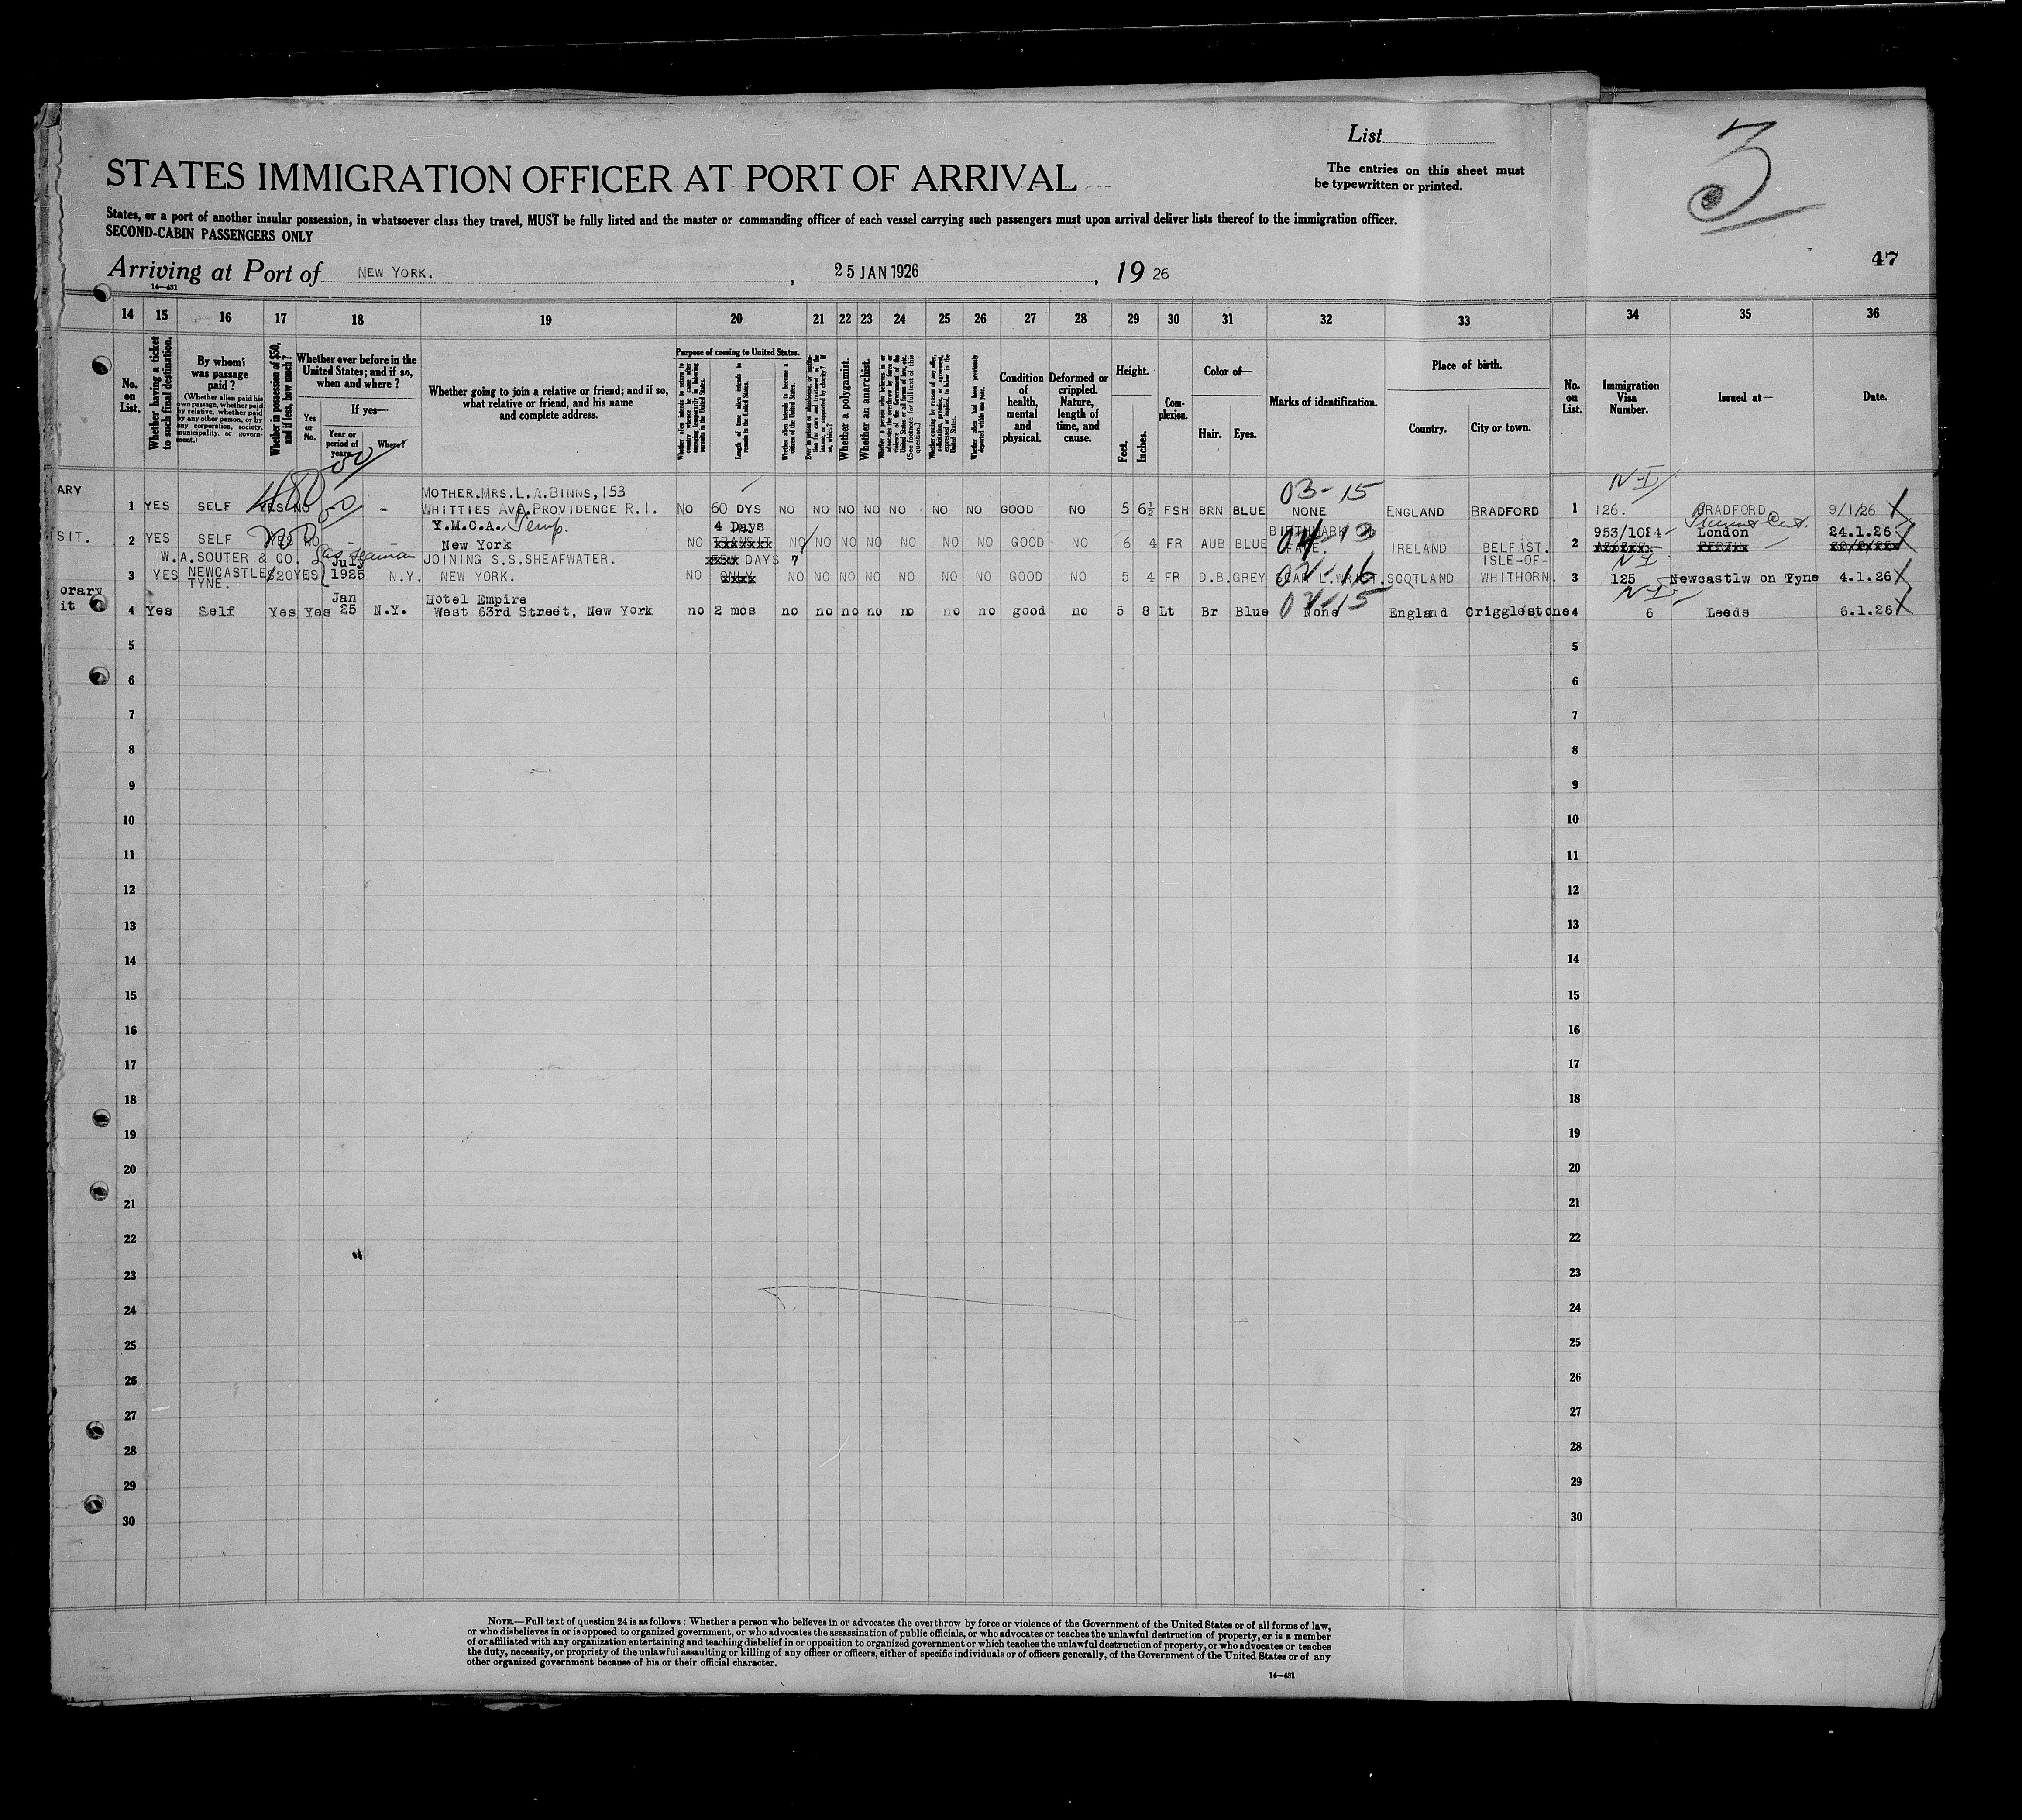 List
3
STATES IMMIGRATION OFFICER AT PORT OF ARRIVAL
The entries on this sheet must
be typewritten or printed.
States, or a port of another insular possession, in whatsoever class they travel, MUST be fully listed and the master or commanding officer of each vessel carrying such passengers must upon arrival deliver lists thereof to the immigration officer.
SECOND-CABIN PASSENGERS ONLY
47
Arriving at Port of NEW YORK. , 25 JAN 1926 , 19 26
14—431
14 15 16 17 18 19 20 21 22 23 24 25 26 27 28 29 30 31 32 33 34 35 36
No. on List.
Whether having a ticket to such final destination.
By whom was passage paid?
(Whether alien paid his own passage, whether paid by relative, whether paid by any other person, or by any corporation, society, municipality, or government.)
Whether in possession of $50, and if less, how much?
Whether ever before in the United States; and if so, when and where?
Yes or No.
If yes—
Year or period of years.
Where?
Whether going to join a relative or friend; and if so, what relative or friend, and his name and complete address.
Purpose of coming to United States.
Length of time alien intends to remain in the United States.
Whether alien intends to become a citizen of the United States.
Whether a polygamist.
Whether an anarchist.
Condition of health, mental and physical.
Deformed or crippled. Nature, length of time, and cause.
Height.
Feet. Inches.
Complexion.
Color of—
Hair. Eyes.
Marks of identification.
Place of birth.
Country. City or town.
No. on List.
Immigration Visa Number.
Issued at—
Date.
ARY
03-15
N-I
MOTHER.MRS.L.A.BINNS,153
1 YES SELF YES NO - WHITTIES AVE.PROVIDENCE R.I. NO 60 DYS NO NO NO NO NO NO NO GOOD NO 5 6½ FSH BRN BLUE NONE ENGLAND BRADFORD 1 126. BRADFORD 9/1/26 X
SIT.
Y.M.C.A., Temp. 4 Days 04-13 953/1084 London 24.1.26 X
2 YES SELF YES NO - - New York NO NO NO NO NO NO NO NO GOOD NO 6 4 FR AUB BLUE IRELAND BELFAST. 2
W.A.SOUTER & CO. July JOINING S.S.SHEAFWATER. DAYS 7 ISLE-OF- N-I
3 YES NEWCASTLE $20 YES 1925 N.Y. NEW YORK. NO NO NO NO NO NO NO NO GOOD NO 5 4 FR D.B. GREY SCAR L.WRIST. SCOTLAND WHITHORN. 3 125 Newcastlw on Tyne 4.1.26 X
TYNE.
orary
it
Jan Hotel Empire N-I
4 Yes Self Yes Yes 25 N.Y. West 63rd Street, New York no 2 mos no no no no no no no good no 5 8 Lt Br Blue None England Crigglestone 4 6 Leeds 6.1.26 X
5 5
6 6
7 7
8 8
9 9
10 10
11 11
12 12
13 13
14 14
15 15
16 16
17 17
18 18
19 19
20 20
21 21
22 22
23 23
24 24
25 25
26 26
27 27
28 28
29 29
30 30
NOTE.—Full text of question 24 is as follows: Whether a person who believes in or advocates the overthrow by force or violence of the Government of the United States or of all forms of law,
or who disbelieves in or is opposed to organized government, or who advocates the assassination of public officials, or who advocates or teaches the unlawful destruction of property, or is a member
of or affiliated with any organization entertaining and teaching disbelief in or opposition to organized government or which teaches the unlawful destruction of property, or who advocates or teaches
the duty, necessity, or propriety of the unlawful assaulting or killing of any officer or officers, either of specific individuals or of officers generally, of the Government of the United States or of any
other organized government because of his or their official character.
14—431